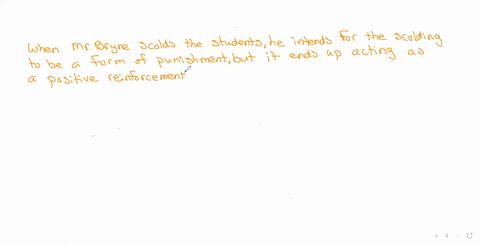 When Mr. Bryne scolds the students, he intends for the scolding
to be a form of punishment, but it ends up acting as
a positive reinforcement